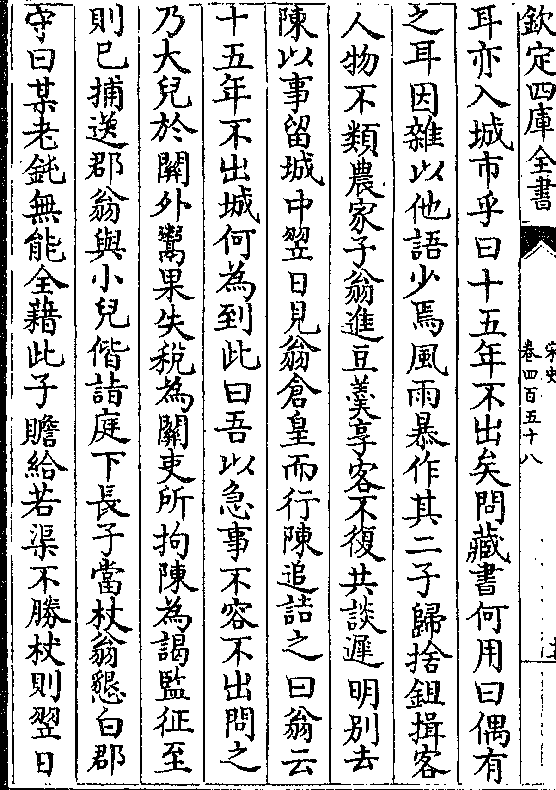 欽定四庫全書
宋史
卷四百五十八
耳亦入城市乎曰十五年不出矣問藏書何用曰偶有
之耳因雜以他語少焉風雨暴作其二子歸捨鉏揖客
人物不類農家子翁進豆羮享客不復共談遲明別去
陳以事留城中翌日見翁倉皇而行陳追詰之曰翁云
十五年不出城何為到此曰吾以急事不容不出問之
乃大兒於關外鬻果失稅為關吏所拘陳為謁監征至
則已捕送郡翁與小兒偕詣庭下長子當杖翁懇白郡
守曰某老鈍無能全藉此子贍給若渠不勝杖則翌日